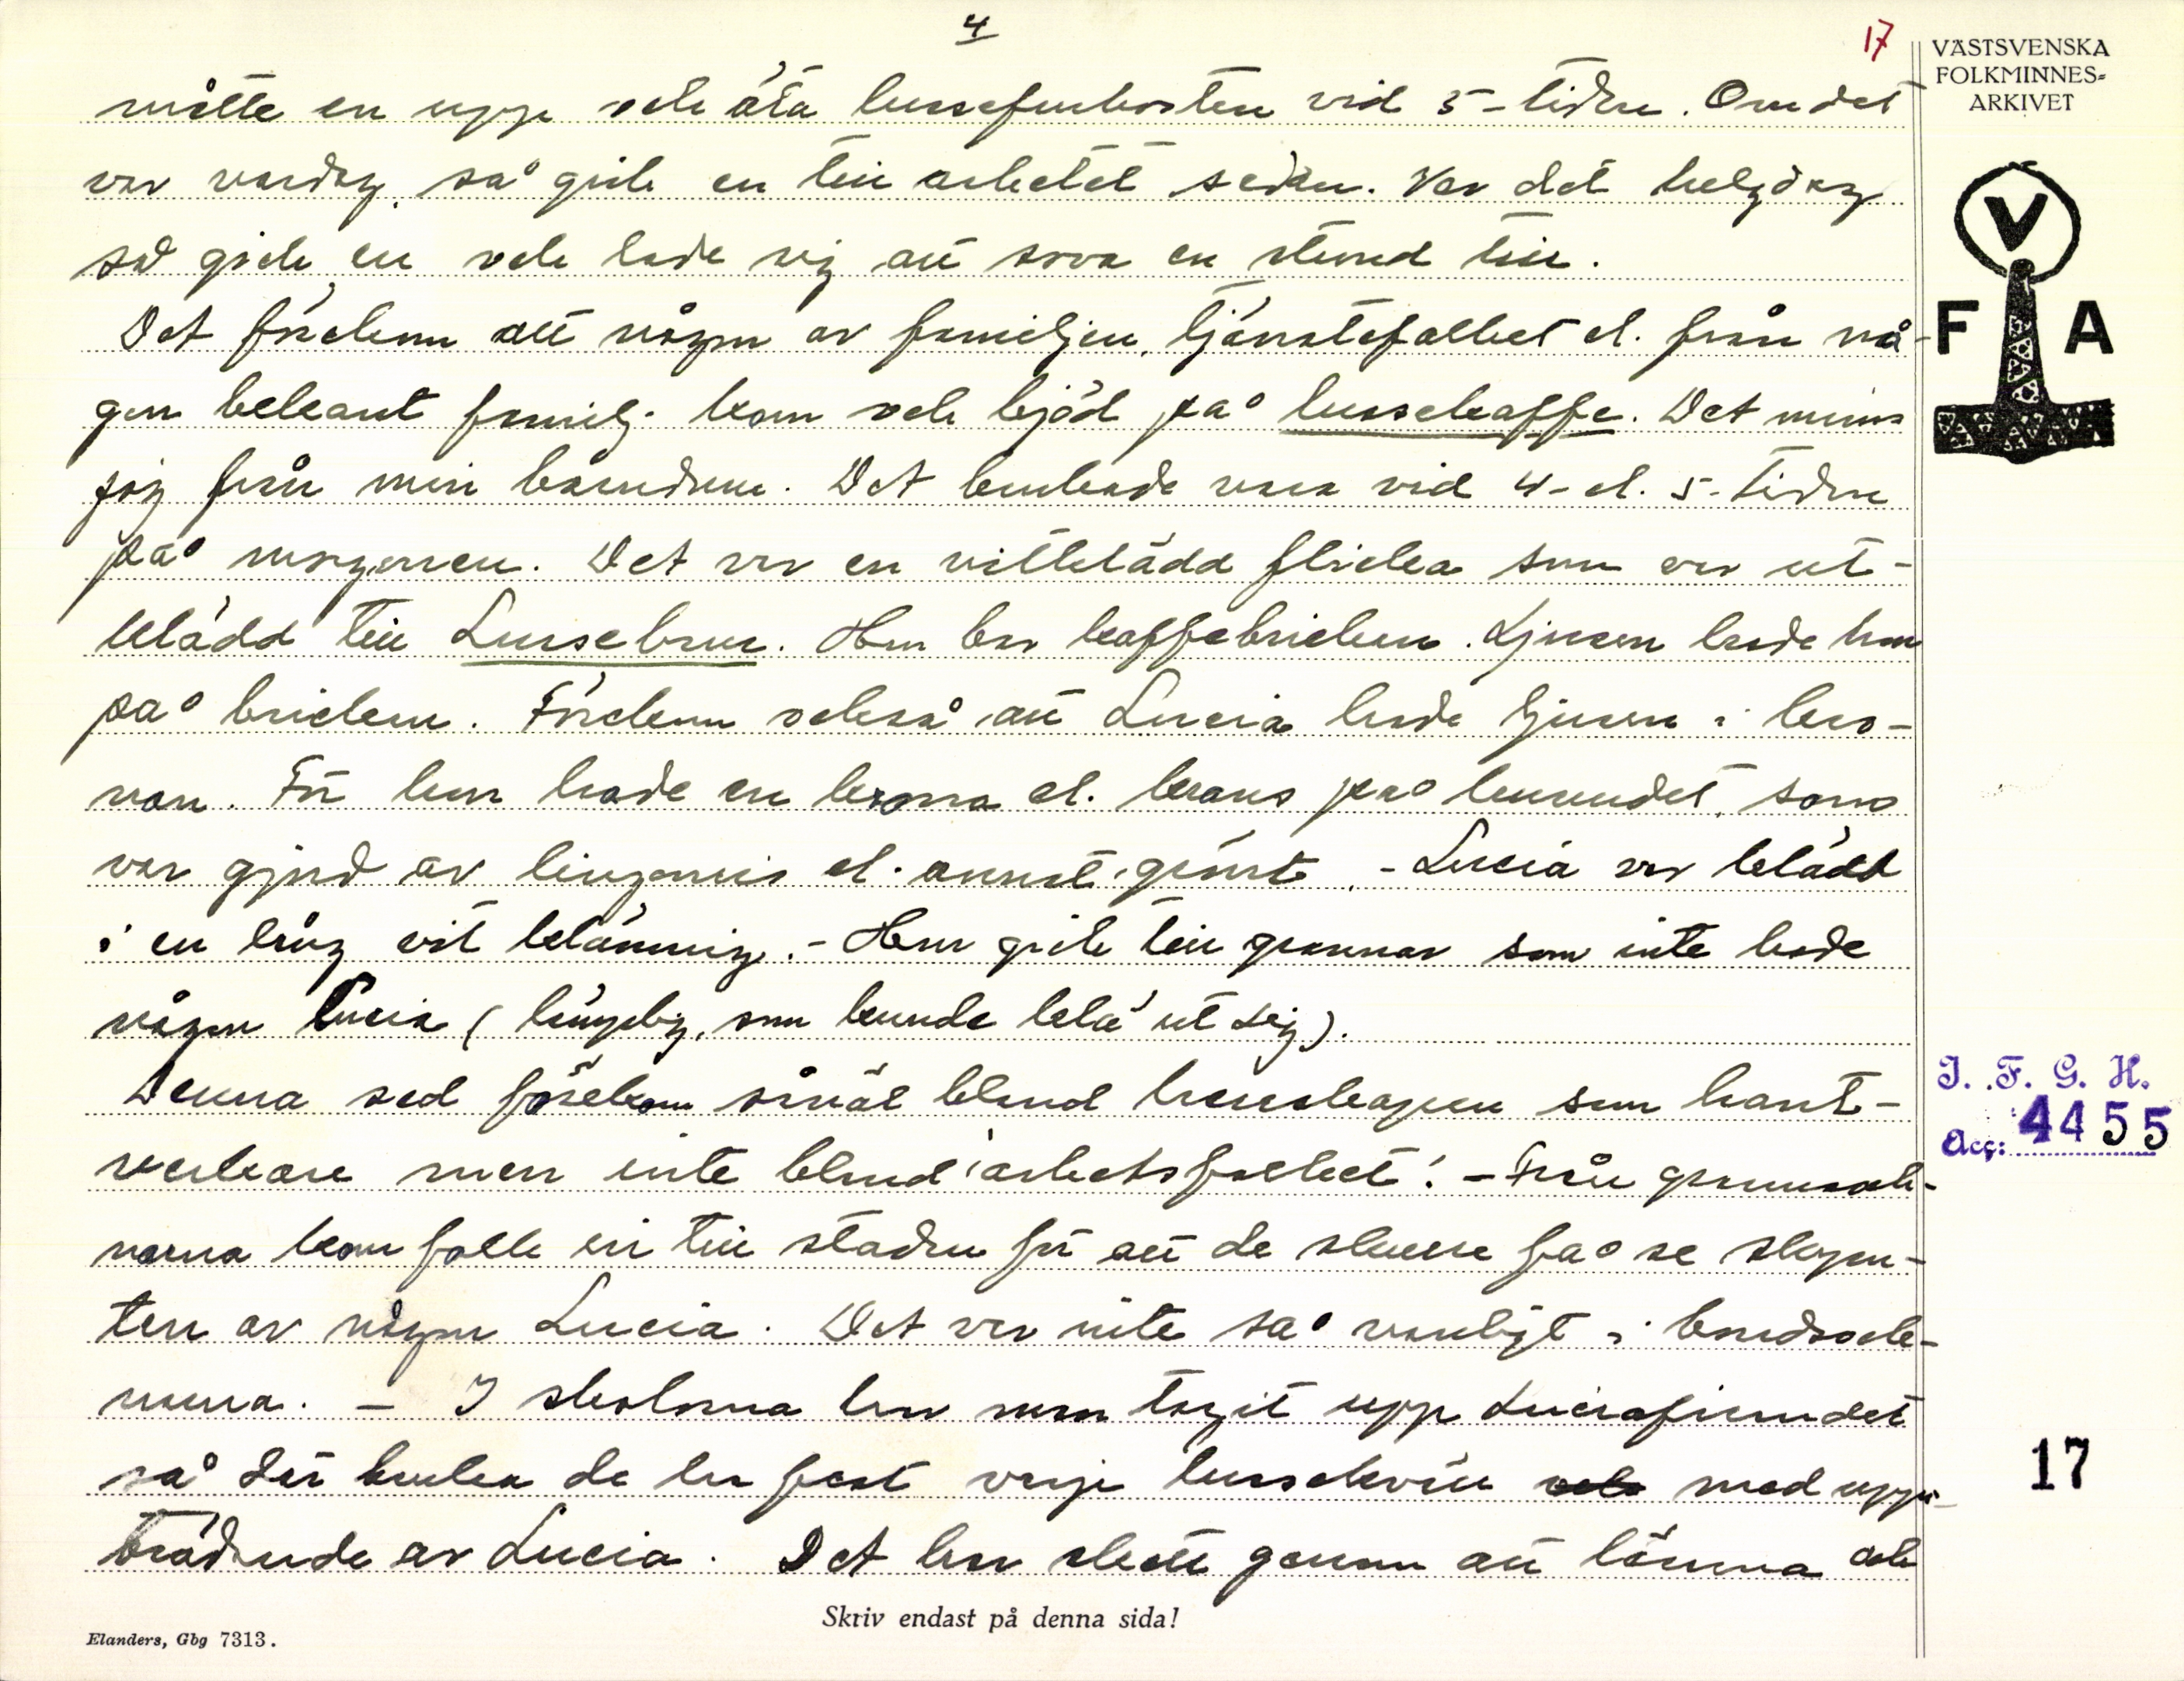 4
17
VÄSTSVENSKA
FOLKMINNES=
ARKIVET
måtte en upp och äta lussefrukosten vid 5-tiden. Om det
var vardag, så gick en till arbetet sedan. Var det helgdag
så gick en och lade sig att sova en stund till.
Det förekom att någon av familjen, tjänstefolket el. från nå-
gon bekant familj kom och bjöd på lussekaffe. Det minns
jag från min barndom. Det brukade vara vid 4- el. 5-tiden
på morgonen. Det var en vitklädd flicka som var ut-
klädd till Lussebrud. Hon bar kaffebrickan. Ljusen hade hon
på brickan. Förekom också att Lucia hade ljusen i kro-
nan. För hon hade en krona el. krans på huvudet, som
var gjord av lingonris el. annat grönt. - Lucia var klädd
i en lång vit klänning. - Hon gick till grannar som inte hade
någon Lucia (lämplig, som kunde klä ut sig).
Denna sed förekom såväl bland herrskapen som hant-
verkare men inte bland 'arbetsfolket'. - Från grannsock-
narna kom folk in till staden för att de skulle få se skym-
ten av någon Lucia. Det var inte så vanligt i landssock-
narna. - I skolorna har man tagit upp Luciafirandet
så där brukar de ha fest varje lussekväll med upp-
trädande av Lucia. Det har skett genom att lärarna och
V
F A
I. F. G. H.
Acc: 4455
17
Skriv endast på denna sida!
Elanders, Gbg 7313.